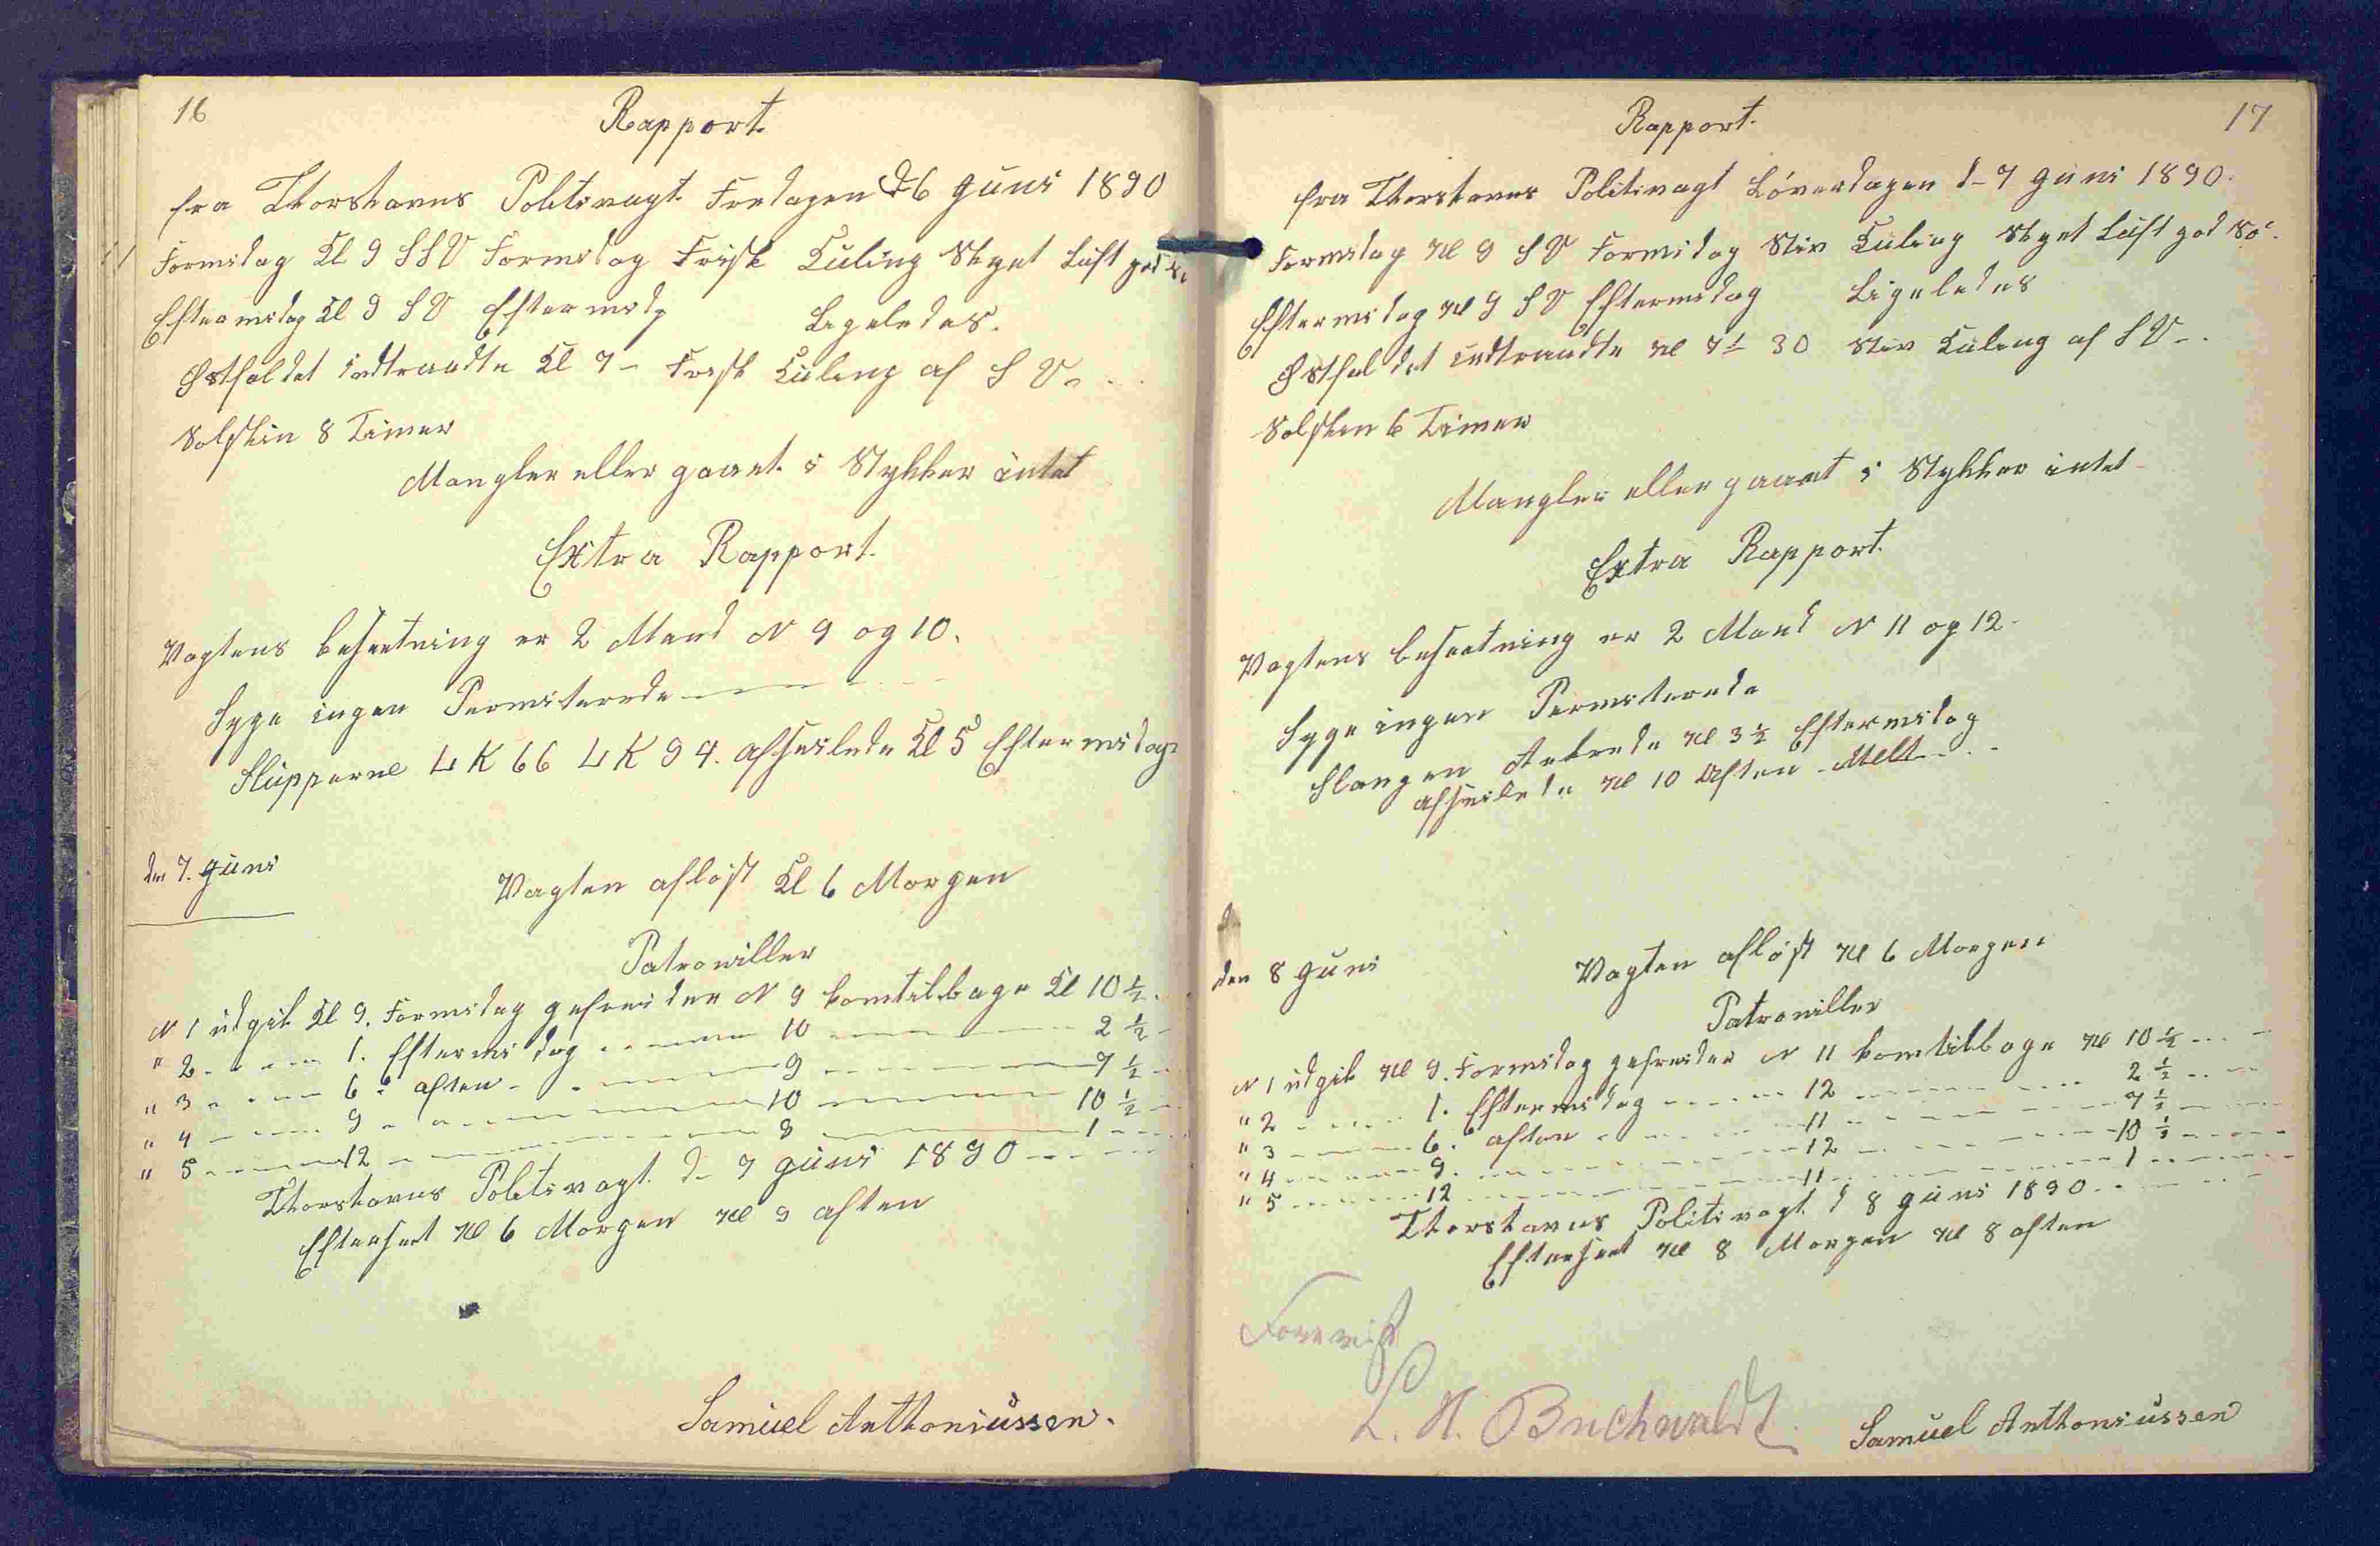 16
Rapport
fra Thorshavns Politivagt Fredagen d 6 Juni 1890
Formidag Kl 9 SSV Formidag Frisk Kuling Skyet Luft god
Eftermidag Kl 9 SV Eftermidg Ligeledes.
Østfaldet indtraadte Kl 7 - Frisk Kuling af SV
Solskin 8 Timer
Mangler eller gaaet i Stykker intet
Extra Rapport
Vagtens besætning er 2 Mand N 9 og 10.
Syge ingen Permiterede
Slupperne LK 66 LK 94. afseilede Kl 5 Eftermidag
den 7. Juni
Vagten afløst Kl 6 Morgen
Patrouiller
N 1 udgik Kl 9. Formidag gefreider N 9 komtilbage Kl 10 ½
" 2 1. Eftermidag 10 2 ½
" 3 6 aften 9 7 ½
" 4 9 10 10 ½
" 5 12 8 1
Thorshavns Politivagt d 7 Juni 1890
Efterseet Kl 6 Morgen Kl 9 aften
Samuel Anthoniussen.
17
Rapport.
fra Thorshavns Politivagt Löverdagen d 7 Juni 1890.
Formidag Kl 9 SV Formidag Stiv Kuling Skyet Luft god Sö.
Eftermidag Kl 9 SV Eftermidag Ligeledes
Østfaldet indtraadte Kl 7 30 Stiv Kuling af SV
Solskin 6 Timer
Mangler eller gaaet i Stykker intet
Extra Rapport.
Vagtens besætning er 2 Mand N 11 og 12.
Syge ingen Permiterede
Ankrede Kl 3 ½ Eftermidag
afseilede Kl 10 Aften
den 8 Juni
Vagten afløst Kl 6 Morgen
Patrouiller
N 1 udgik Kl 9. Formidag gefreider N 11 komtilbage Kl 10 ½
" 2 1. Eftermidag 12 2 ½
" 3 6. aften 11 7 ½
" 4 9. 12 10 ½
" 5 12 11 1
Thorshavns Politivagt d 8 Juni 1890
Efterseet Kl 8 Morgen Kl 8 aften
Forevist
L. H. Buchwaldt
Samuel Anthoniussen